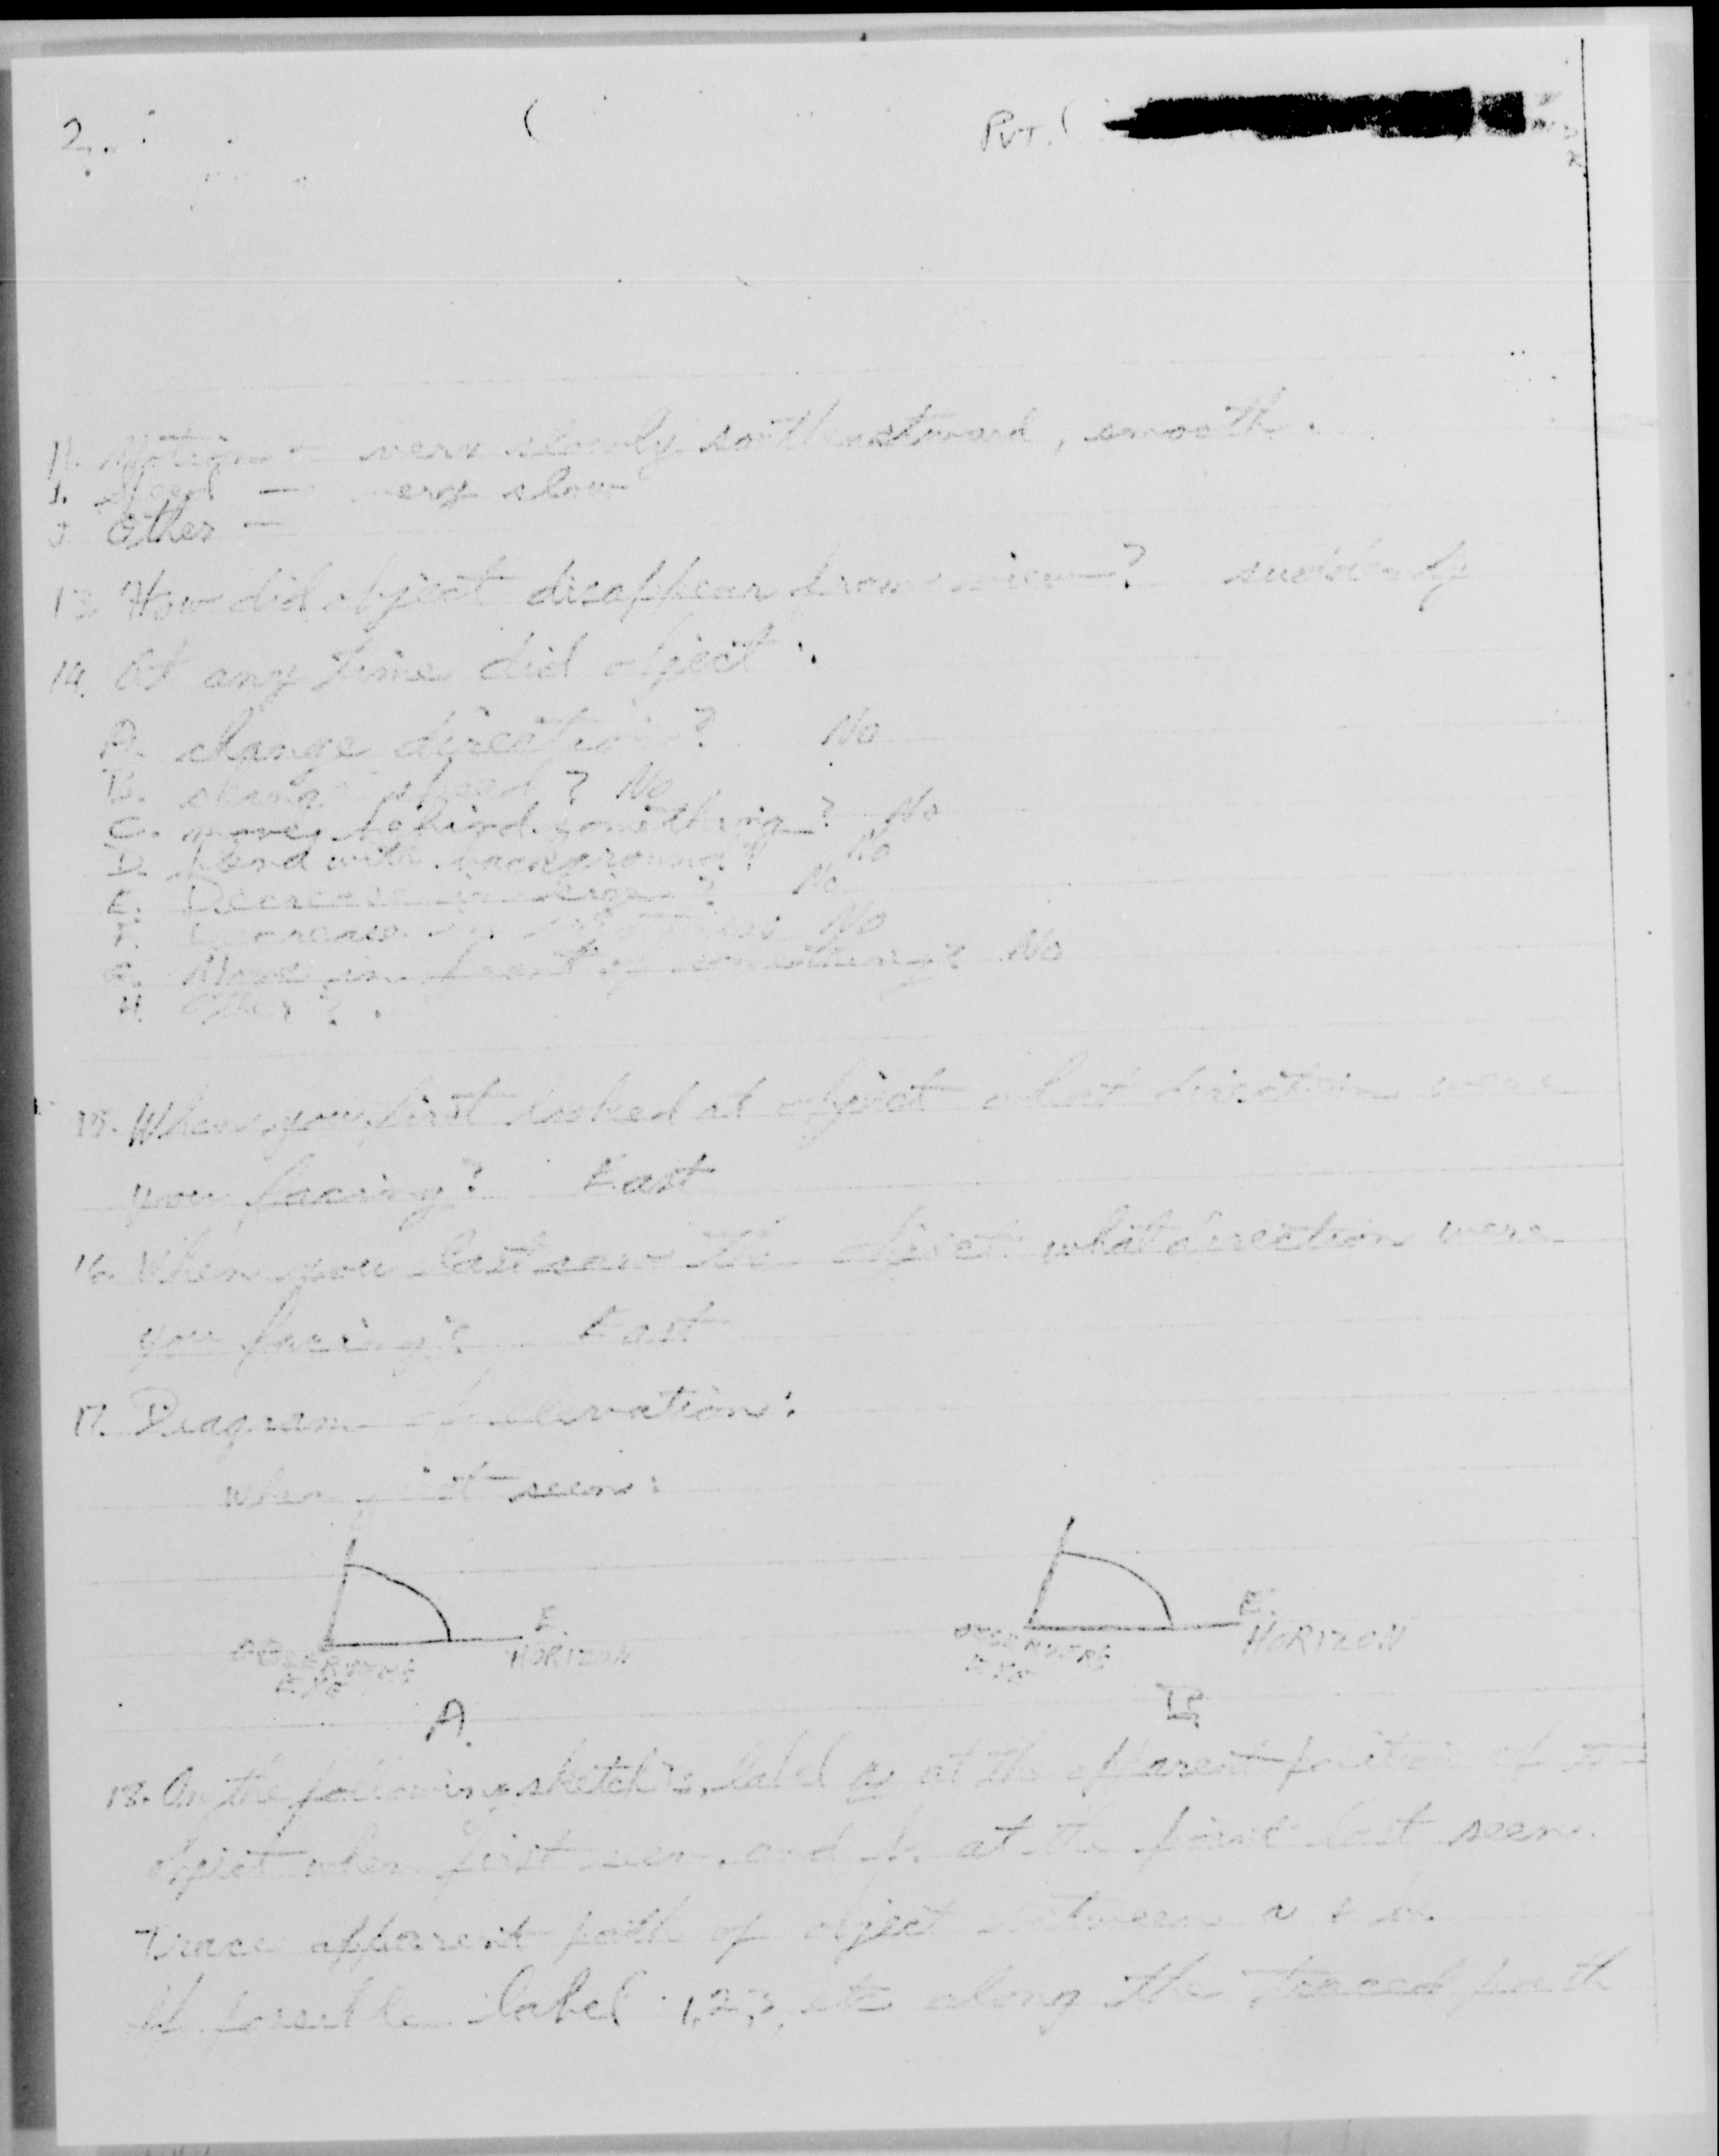 2.
Pvt.
H. Motion - very slowly southeastward, smooth.
I. Speed - very slow
J. Other -
13. How did object disappear from view? suddenly
14. At any time did object:
A. change direction? No
B. change speed? No
C. move behind something? No
D. blend with background? No
E. Decrease in size? No
F. Decrease in brightness No
G. Move in front of something? No
H. Other?
15. When you first looked at object what direction were
you facing? East
16. When you last saw the object what direction were
you facing? East
17. Diagram elevation:
when first seen:
E. E.
OBSERVERS HORIZON OBSERVERS HORIZON
EYE EYE
A. B.
18. On the following sketch, label a at the apparent position of
object when first seen, and b at the point last seen.
Trace apparent path of object between a & b.
If possible label 1,2,3, etc along the traced path